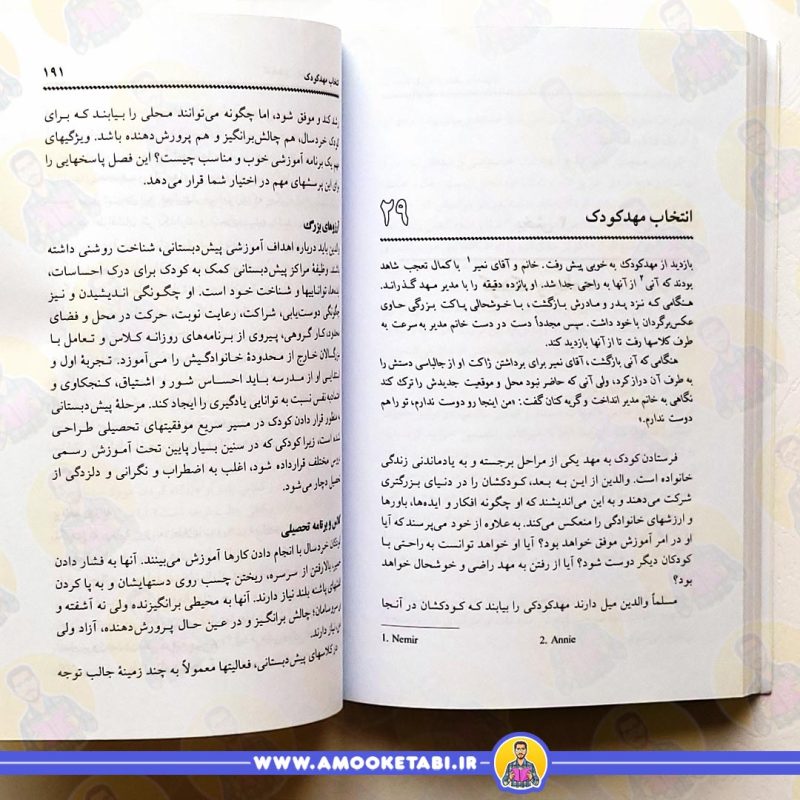 ۲۹
انتخاب مهدکودک
بازدید از مهدکودک به خوبی پیش رفت. خانم و آقای نمیر۱ با کمال تعجب شاهد
بودند که آنی۲ از آنها به راحتی جدا شد. او پانزده دقیقه را با مدیر مهد گذراند.
هنگامی که نزد پدر و مادرش بازگشت، با خوشحالی پاکت بزرگی حاوی
عکس‌برگردان با خود داشت. سپس مجدداً دست در دست خانم مدیر به سرعت به
طرف کلاسها رفت تا از آنها بازدید کند.
هنگامی که آنی بازگشت، آقای نمیر برای برداشتن ژاکت او از جالباسی دستش را
به طرف آن دراز کرد، ولی آنی که حاضر نبود محل و موقعیت جدیدش را ترک کند
نگاهی به خانم مدیر انداخت و گریه کنان گفت: «من اینجا رو دوست ندارم، تو را هم
دوست ندارم.»
فرستادن کودک به مهد یکی از مراحل برجسته و به یادماندنی زندگی
خانواده است. والدین از این به بعد، کودکشان را در دنیای بزرگتری
شرکت می‌دهند و به این می‌اندیشند که او چگونه افکار و ایده‌ها، باورها
و ارزشهای خانوادگی را منعکس می‌کند. به علاوه از خود می‌پرسند که آیا
او در امر آموزش موفق خواهد بود؟ آیا او خواهد توانست به راحتی با
کودکان دیگر دوست شود؟ آیا از رفتن به مهد راضی و خوشحال خواهد
بود؟
مسلماً والدین میل دارند مهدکودکی را بیابند که کودکشان در آنجا
1. Nemir 2. Annie
انتخاب مهدکودک ۱۹۱
کند و موفق شود، اما چگونه می‌توانند محلی را بیابند که برای
کودک خردسال، هم چالش‌برانگیز و هم پرورش‌دهنده باشد. ویژگیهای
مهم یک برنامه آموزشی خوب و مناسب چیست؟ این فصل پاسخهایی را
برای این پرسشهای مهم در اختیار شما قرار می‌دهد.
آرزوهای بزرگ
والدین باید درباره اهداف آموزشی پیش‌دبستانی، شناخت روشنی داشته
باشند. وظیفهٔ مراکز پیش‌دبستانی کمک به کودک برای درک احساسات،
تواناییها و شناخت خود است. او چگونگی اندیشیدن و نیز
چگونگی دوست‌یابی، شراکت، رعایت نوبت، حرکت در محل و فضای
محدود، کار گروهی، پیروی از برنامه‌های روزانه کلاس و تعامل با
بزرگسالان خارج از محدودهٔ خانوادگیش را می‌آموزد. تجربهٔ اول و
ابتدایی او از مدرسه باید احساس شور و اشتیاق، کنجکاوی و
اعتماد به نفس نسبت به توانایی یادگیری را ایجاد کند. مرحلهٔ پیش‌دبستانی
منظور قرار دادن کودک در مسیر سریع موفقیتهای تحصیلی طراحی
نشده است، زیرا کودکی که در سنین بسیار پایین تحت آموزش رسمی
دروس مختلف قرار داده شود، اغلب به اضطراب و نگرانی و دلزدگی از
تحصیل دچار می‌شود.
کلاس و برنامه تحصیلی
کودکان خردسال با انجام دادن کارها آموزش می‌بینند. آنها به فشار دادن
بالا رفتن از سرسره، ریختن چسب روی دستهایشان و به پا کردن
کفشهای پاشنه بلند نیاز دارند. آنها به محیطی برانگیزنده ولی نه آشفته و
چالش برانگیز و در عین حال پرورش‌دهنده، آزاد ولی
نیاز دارند.
در کلاسهای پیش‌دبستانی، فعالیتها معمولاً به چند زمینهٔ جالب توجه
WWW.AMOOKETABI.IR